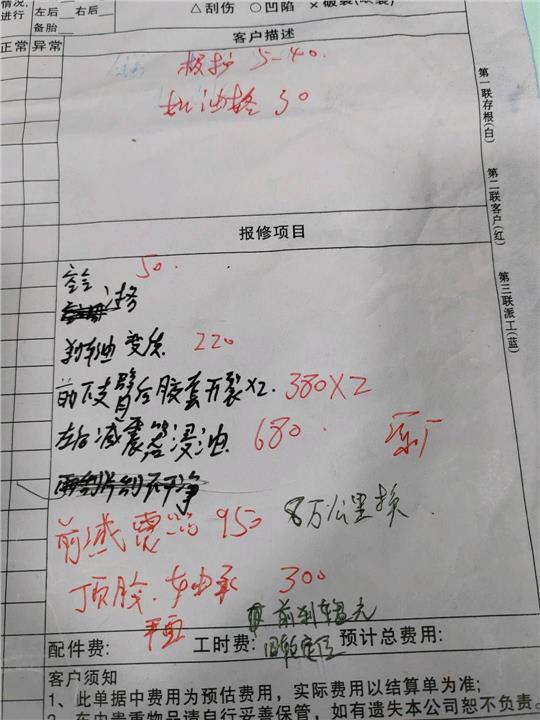 情况,
进行
左后 右后
备胎
△刮伤 ○凹陷
正常 异常
客户描述
5-40.
机油格 30
第一联存根(白)
第二联客户(红)
第三联派工(蓝)
报修项目
50.
刹车油变质 220
前下支臂后胶套开裂X2. 380X2
左后减震器浸油 680
原厂
前减震器 950 8万公里换
顶胶. 轴承 300
平面
前刹车盘光
四轮定位
配件费: 工时费: 预计总费用:
客户须知
1、此单据中费用为预估费用，实际费用以结算单为准;
2、车内贵重物品请自行妥善保管，如有遗失本公司恕不负责。